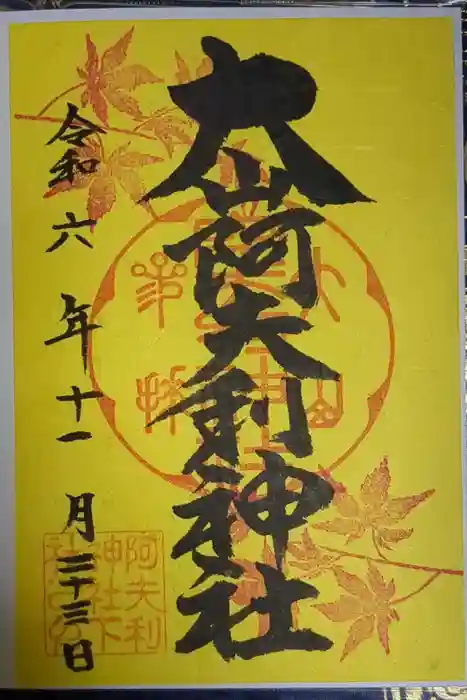 大山阿夫利神社
令和六年十一月二十三日
阿夫利
神社下
社